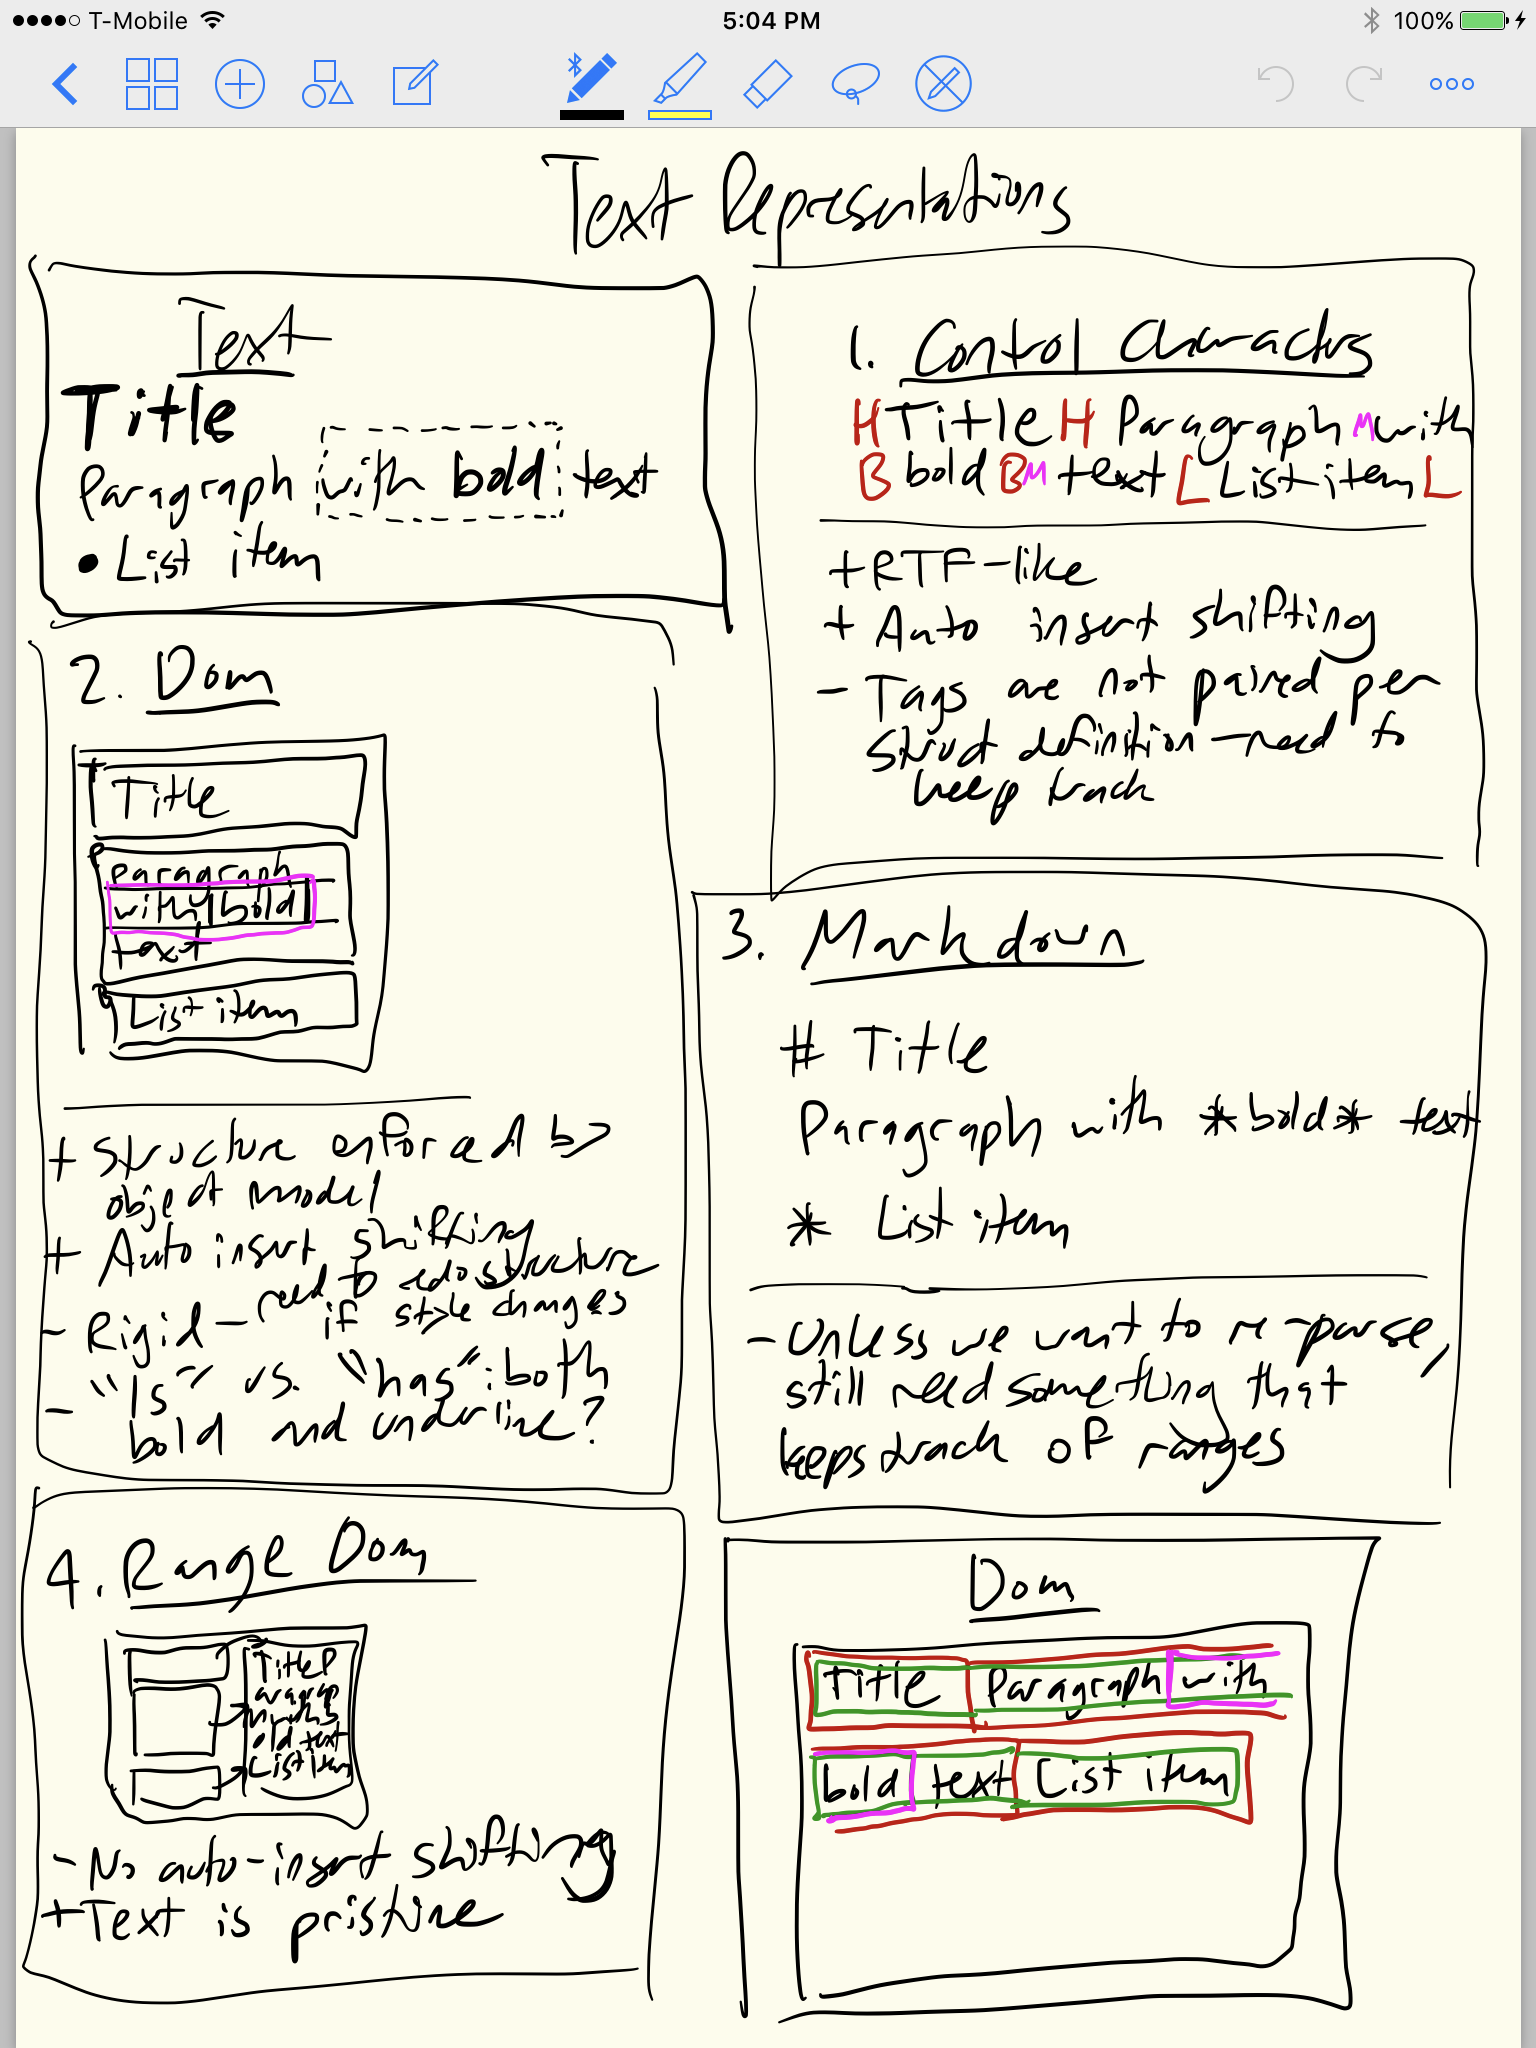 T-Mobile
5:04 PM
100%
Text Representations
Text
Title
Paragraph with bold text
• List item
1. Control Characters
H Title H Paragraph M with
B bold B M text L List item L
+ RTF-like
+ Auto insert shifting
- Tags are not paired per
struct definition - need to
keep track
2. Dom
T
Title
P
Paragraph
with bold
text
List item
+ Structure enforced by
object model
+ Auto insert shifting
- Rigid - need to redo structure
if style changes
- "Is" vs. "has": both
bold and underline?
3. Markdown
# Title
Paragraph with *bold* text
* List item
- Unless we want to re-parse,
still need something that
keeps track of ranges
4. Range Dom
Title P
aragrap
h with b
old text
List item
- No auto-insert shifting
+ Text is pristine
Dom
Title Paragraph with
bold text List item